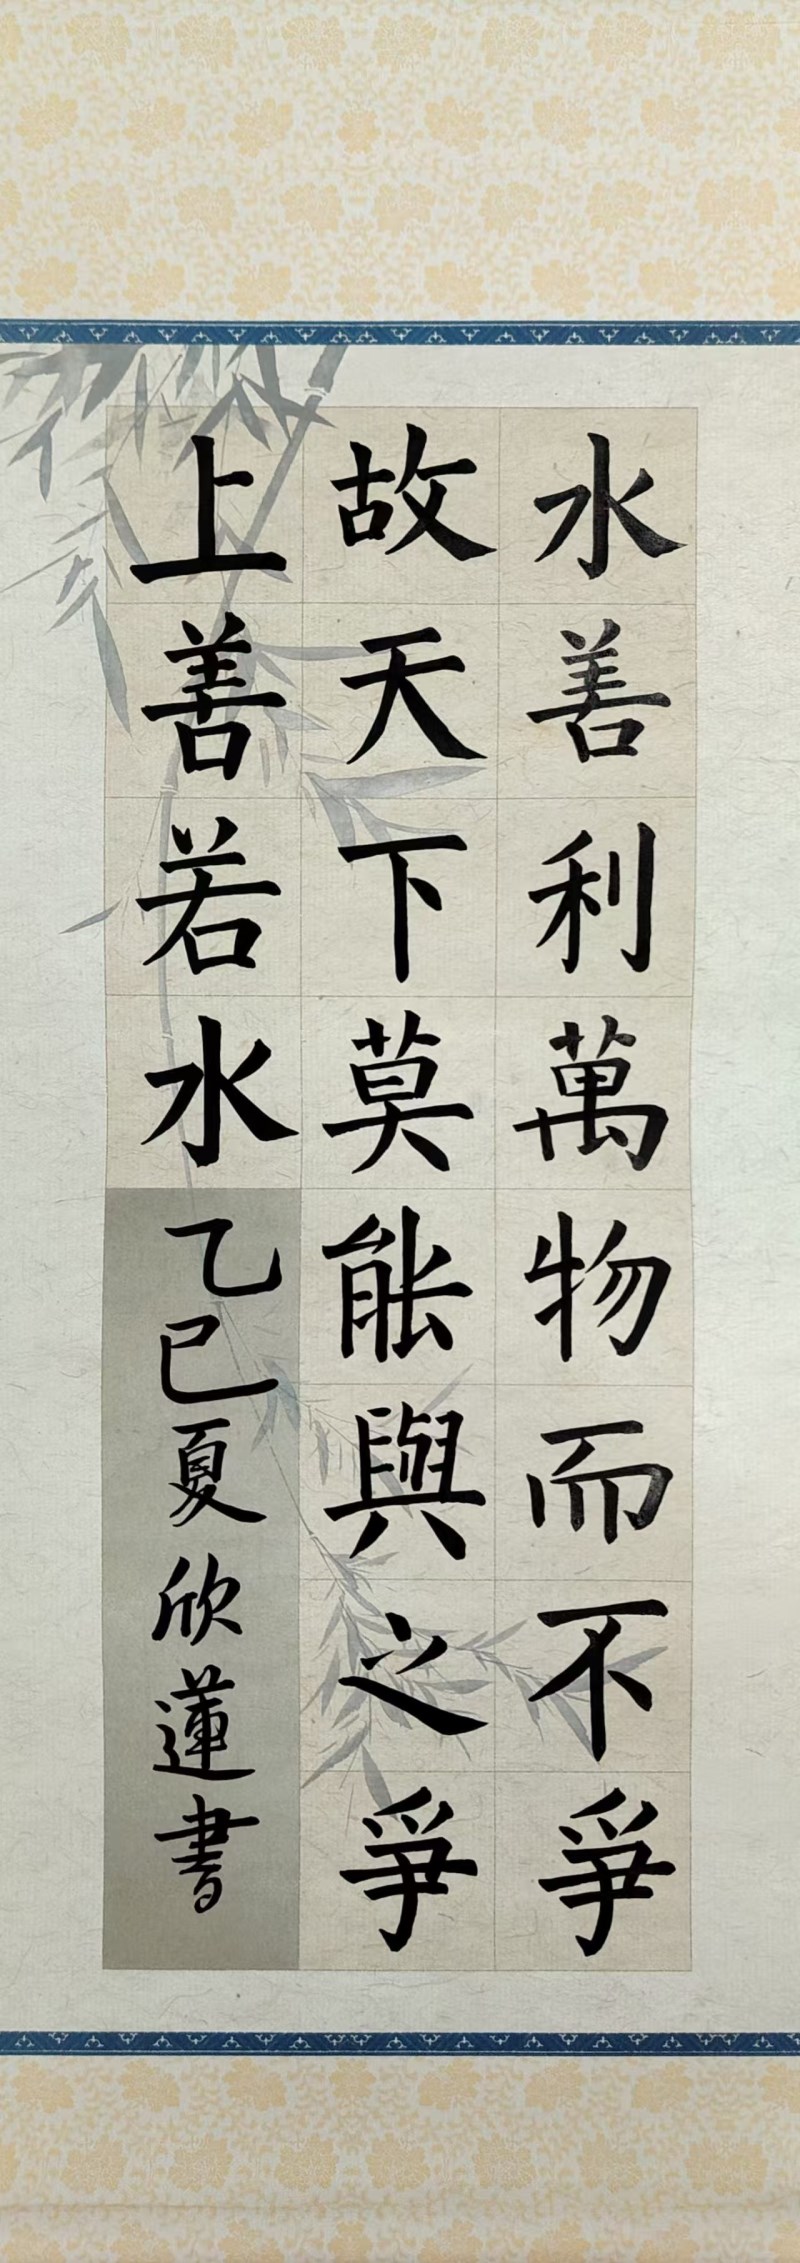 水善利萬物而不爭
故天下莫能與之爭
上善若水
乙巳夏欣蓮書